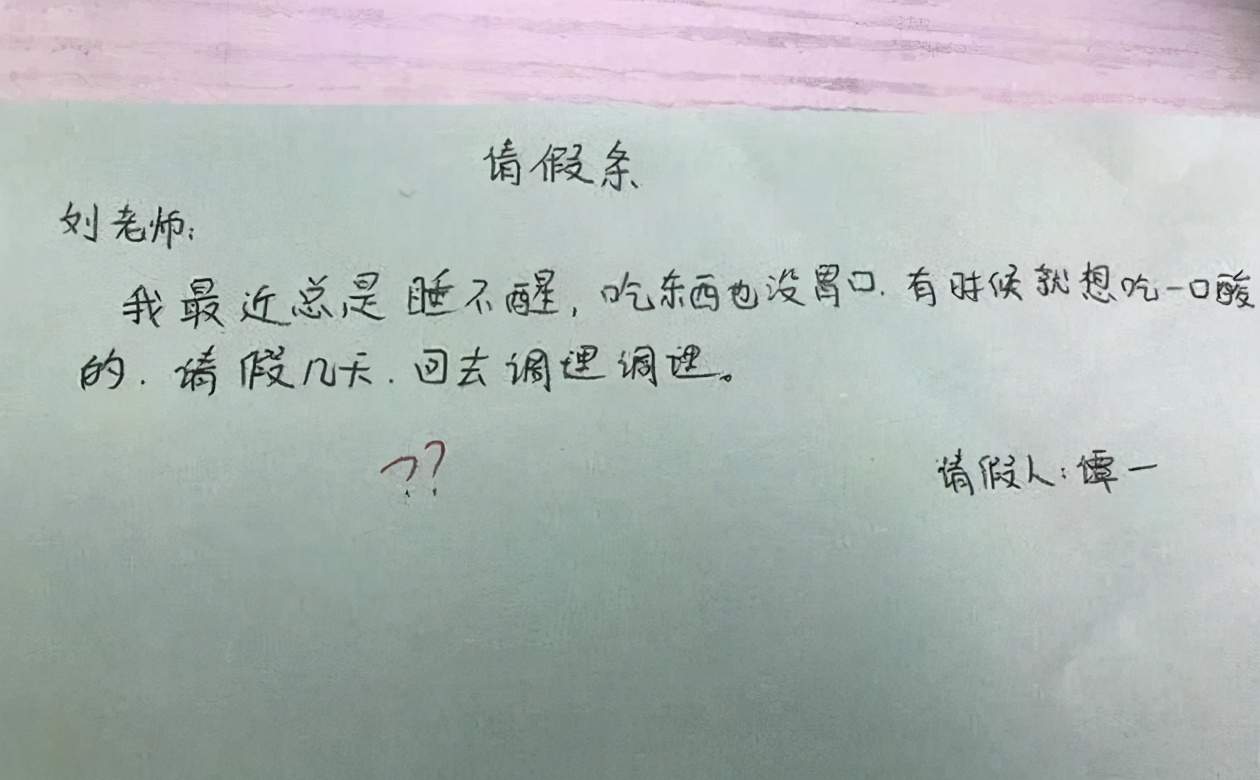 请假条
刘老师：
我最近总是睡不醒，吃东西也没胃口．有时候就想吃一口酸
的．请假几天．回去调理调理。
??
请假人：谭一